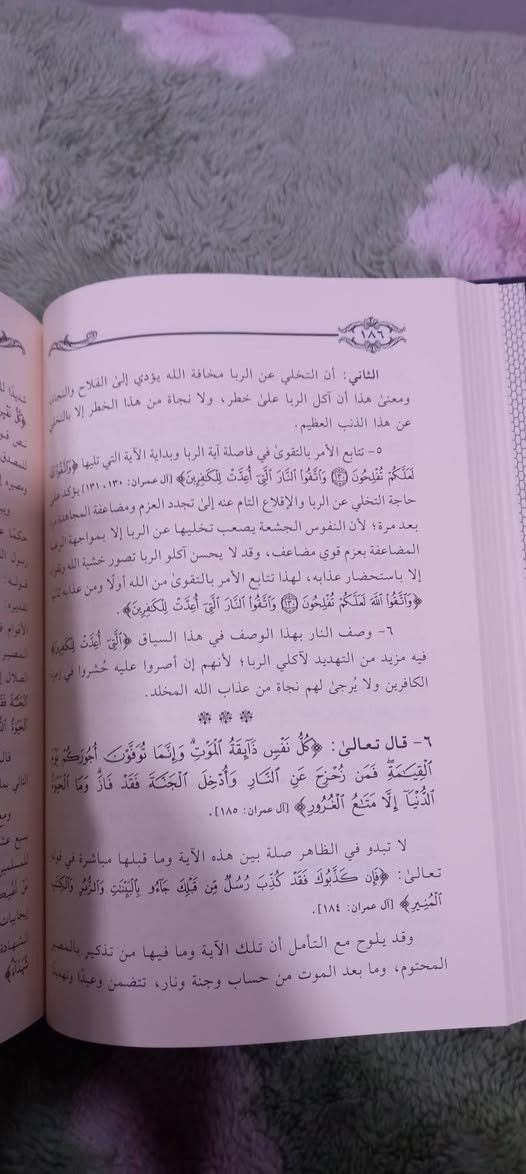 ١٨٦
الثاني: أن التخلي عن الربا مخافة الله يؤدي إلى الفلاح والنجاة،
ومعنى هذا أن آكل الربا على خطر، ولا نجاة من هذا الخطر إلا بالتخلي
عن هذا الذنب العظيم.
٥- تتابع الأمر بالتقوى في فاصلة آية الربا وبداية الآية التي تليها ﴿وَاتَّقُوا اللَّهَ
لَعَلَّكُمْ تُفْلِحُونَ ۝١٣٠ وَاتَّقُوا النَّارَ الَّتِي أُعِدَّتْ لِلْكَافِرِينَ﴾ [آل عمران: ١٣٠، ١٣١] يؤكد
حاجة التخلي عن الربا والإقلاع التام عنه إلى تجدد العزم ومضاعفة المجاهدة
بعد مرة؛ لأن النفوس الجشعة يصعب تخليها عن الربا إلا بمواجهة
المضاعفة بعزم قوي مضاعف، وقد لا يحسن آكلو الربا تصور خشية الله
إلا باستحضار عذابه، لهذا تتابع الأمر بالتقوى من الله أولًا ومن عذابه
﴿وَاتَّقُوا اللَّهَ لَعَلَّكُمْ تُفْلِحُونَ ۝١٣٠ وَاتَّقُوا النَّارَ الَّتِي أُعِدَّتْ لِلْكَافِرِينَ﴾.
٦- وصف النار بهذا الوصف في هذا السياق ﴿الَّتِي أُعِدَّتْ لِلْكَافِرِينَ﴾
فيه مزيد من التهديد لآكلي الربا؛ لأنهم إن أصروا عليه حُشروا في زمرة
الكافرين ولا يُرجىٰ لهم نجاة من عذاب الله المخلد.
٦- قال تعالىٰ: ﴿كُلُّ نَفْسٍ ذَائِقَةُ الْمَوْتِ وَإِنَّمَا تُوَفَّوْنَ أُجُورَكُمْ يَوْمَ
الْقِيَامَةِ فَمَن زُحْزِحَ عَنِ النَّارِ وَأُدْخِلَ الْجَنَّةَ فَقَدْ فَازَ وَمَا الْحَيَاةُ
الدُّنْيَا إِلَّا مَتَاعُ الْغُرُورِ﴾ [آل عمران: ١٨٥].
لا تبدو في الظاهر صلة بين هذه الآية وما قبلها مباشرة في قوله
تعالىٰ: ﴿فَإِن كَذَّبُوكَ فَقَدْ كُذِّبَ رُسُلٌ مِّن قَبْلِكَ جَاءُو بِالْبَيِّنَاتِ وَالزُّبُرِ وَالْكِتَابِ
الْمُنِيرِ﴾ [آل عمران: ١٨٤].
وقد يلوح مع التأمل أن تلك الآية وما فيها من تذكير بالمصير
المحتوم، وما بعد الموت من حساب وجنة ونار، تتضمن وعيدًا وتهديدًا